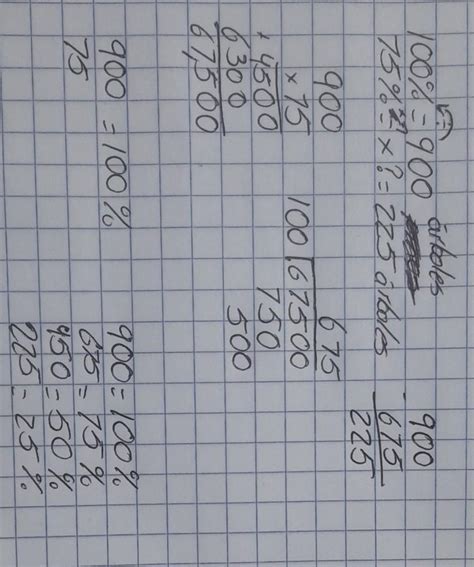 100% = 900 árboles
75% = x ? = 225 árboles
900
675
225
900
x 75
+ 4500
6300
67,500
675
100 67500
750
500
900 = 100%
75
900 = 100%
675 = 75%
450 = 50%
225 = 25%